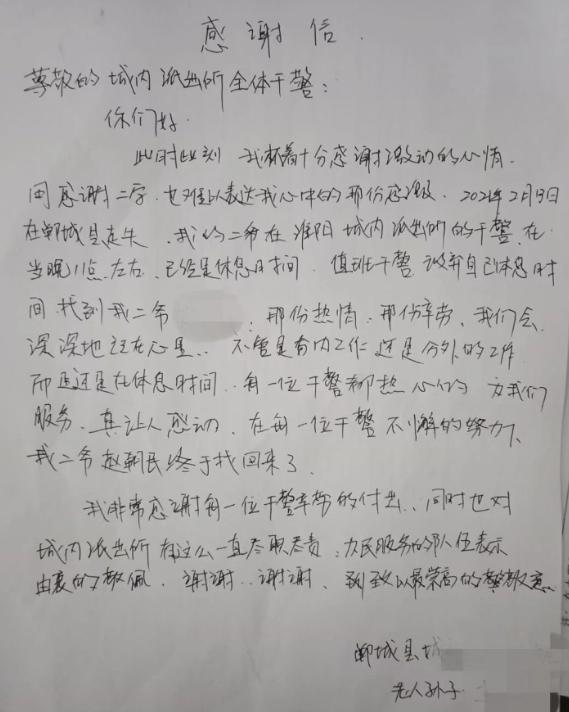 感谢信.
尊敬的城内派出所全体干警:
你们好.
此时此刻 我怀着十分感谢激动的心情.
用感谢二字.也难以表达我心中的那份感激.2021年2月9日
在郸城县走失.我的二爷在淮阳城内派出所的干警.在
当晚11点左右.已经是休息时间.值班干警放弃自己休息时
间找到我二爷 .那份热情.那份辛劳.我们会
深深地记在心里..不管是份内工作还是分外的工作
而且还是在休息时间.每一位干警都热心的为我们
服务.真让人感动.在每一位干警不懈的努力下.
我二爷赵朝民终于找回来了.
我非常感谢每一位干警辛劳的付出..同时也对
城内派出所有这么一直尽职尽责.为民服务的队伍表示
由衷的敬佩.谢谢..谢谢. 致以最崇高的敬意
郸城县城
老人孙子